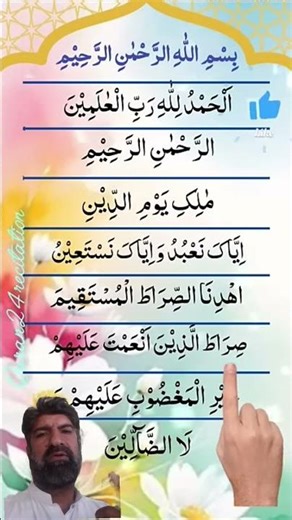 بِسْمِ اللّٰهِ الرَّحْمٰنِ الرَّحِيْمِ
اَلْحَمْدُ لِلّٰهِ رَبِّ الْعٰلَمِيْنَ
الرَّحْمٰنِ الرَّحِيْمِ
مٰلِكِ يَوْمِ الدِّيْنِ
اِيَّاكَ نَعْبُدُ وَاِيَّاكَ نَسْتَعِيْنُ
اهْدِنَا الصِّرَاطَ الْمُسْتَقِيْمَ
صِرَاطَ الَّذِيْنَ اَنْعَمْتَ عَلَيْهِمْ
الْمَغْضُوْبِ عَلَيْهِمْ
لَا الضَّآلِّيْنَ
recitation